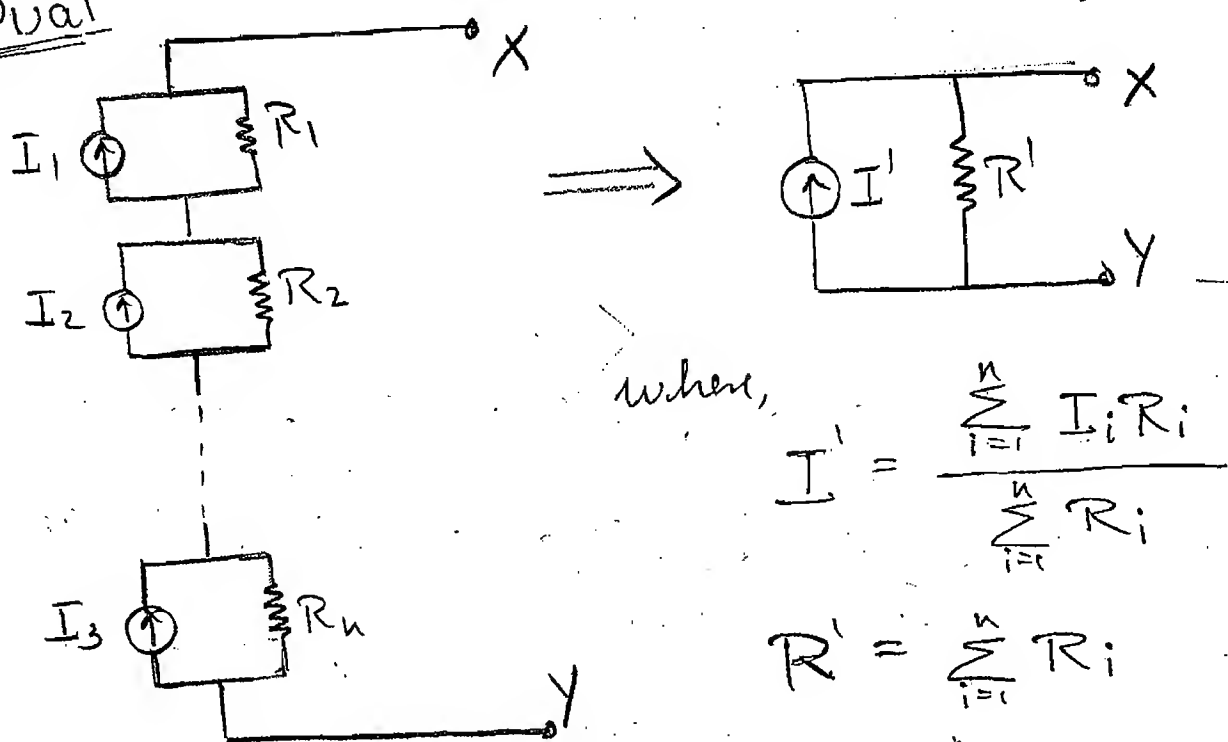 Dual
X
I₁ R₁
I₂ R₂
I₃ Rₙ
Y
⇒
X
I' R'
Y
where,
I' = \frac{\sum_{i=1}^{n} I_i R_i}{\sum_{i=1}^{n} R_i}
R' = \sum_{i=1}^{n} R_i